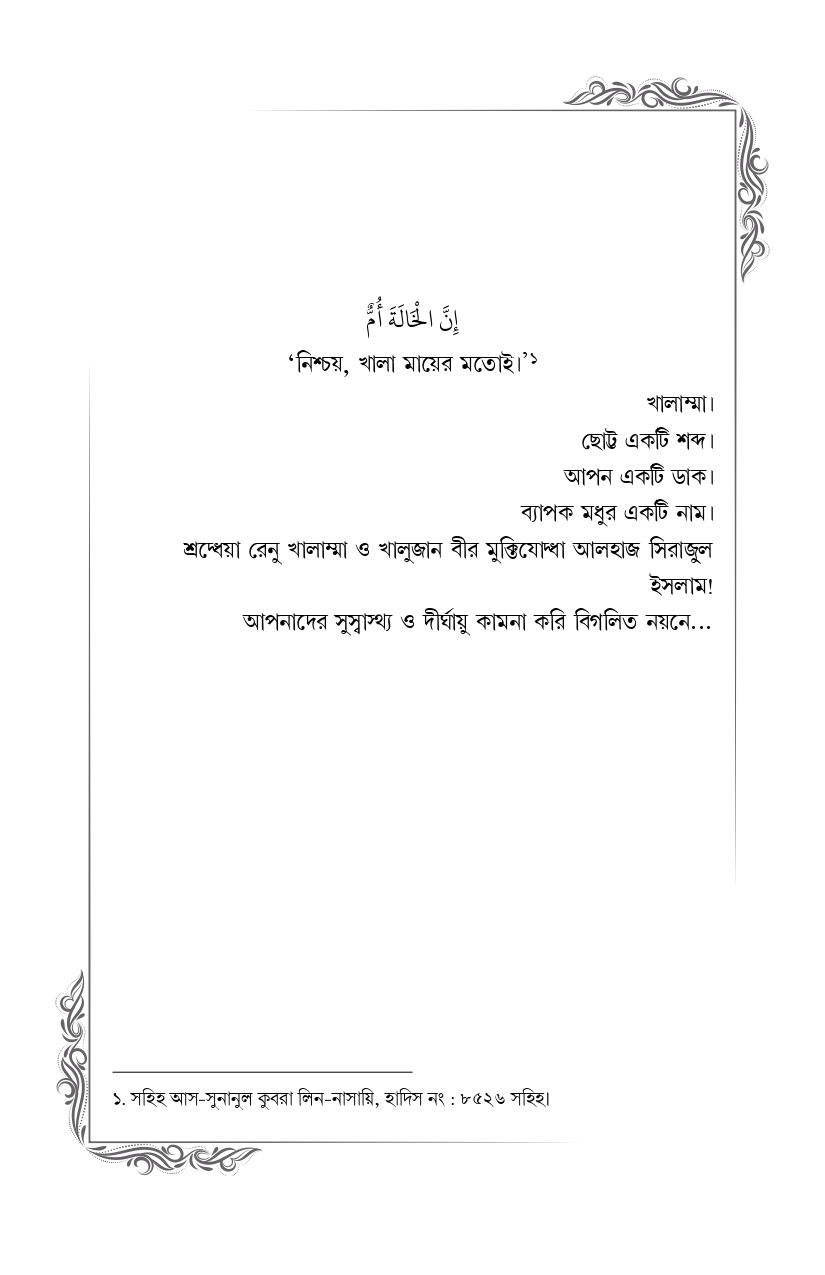 إِنَّ الْخَالَةَ أُمٌّ
‘নিশ্চয়, খালা মায়ের মতোই।’১
খালাম্মা।
ছোট্ট একটি শব্দ।
আপন একটি ডাক।
ব্যাপক মধুর একটি নাম।
শ্রদ্ধেয়া রেনু খালাম্মা ও খালুজান বীর মুক্তিযোদ্ধা আলহাজ সিরাজুল
ইসলাম!
আপনাদের সুস্বাস্থ্য ও দীর্ঘায়ু কামনা করি বিগলিত নয়নে...
১. সহিহ আস-সুনানুল কুবরা লিন-নাসায়ি, হাদিস নং : ৮৫২৬ সহিহ।